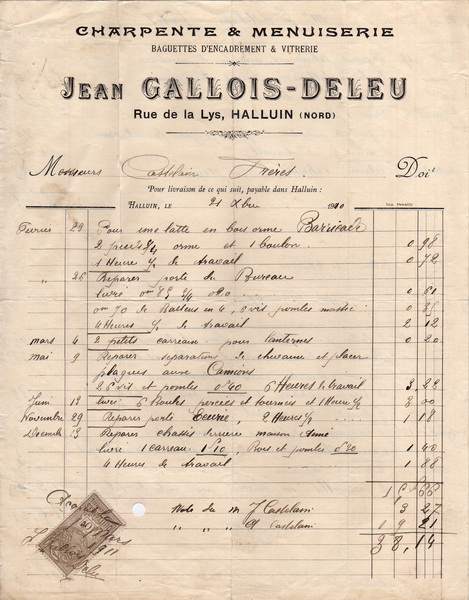 CHARPENTE & MENUISERIE
BAGUETTES D'ENCADREMENT & VITRERIE
JEAN GALLOIS-DELEU
Rue de la Lys, HALLUIN (NORD)
Monsieurs Castelain Frères. Doit
Pour livraison de ce qui suit, payable dans Halluin :
HALLUIN, LE 21 Xbre 1910
Février Pour une latte en bois orme Barricade
2 pieds orme et 1 boulon 0 98
1 Heure ½ de travail 0 72
" 26 Reparer porte du Bureau
livré 0 61
0m 70 de 4, 3 vis pointes
4 Heures ½ de travail 2 12
mars 4 2 petits carreaux pour lanternes 0 20
mai 9 Reparer separations de chevaux et placer
plaques Camions
26 vis et pointes 0,40 6 Heures de travail 3
Juin 13 livré 6 Boules percées et tournées et 1 Heure ½ 3 00
Novembre 29 Reparer porte Ecurie, 2 Heures ½ 1 18
Decembre 13 Reparer chassis maison Aimé
livré 1 carreau 1,10, Bois et pointes 0,30 1 40
4 Heures de travail 1 88
Note de Mr J Castelain 3 27
" " " Castelain 19 21
38,14
Mars 1911